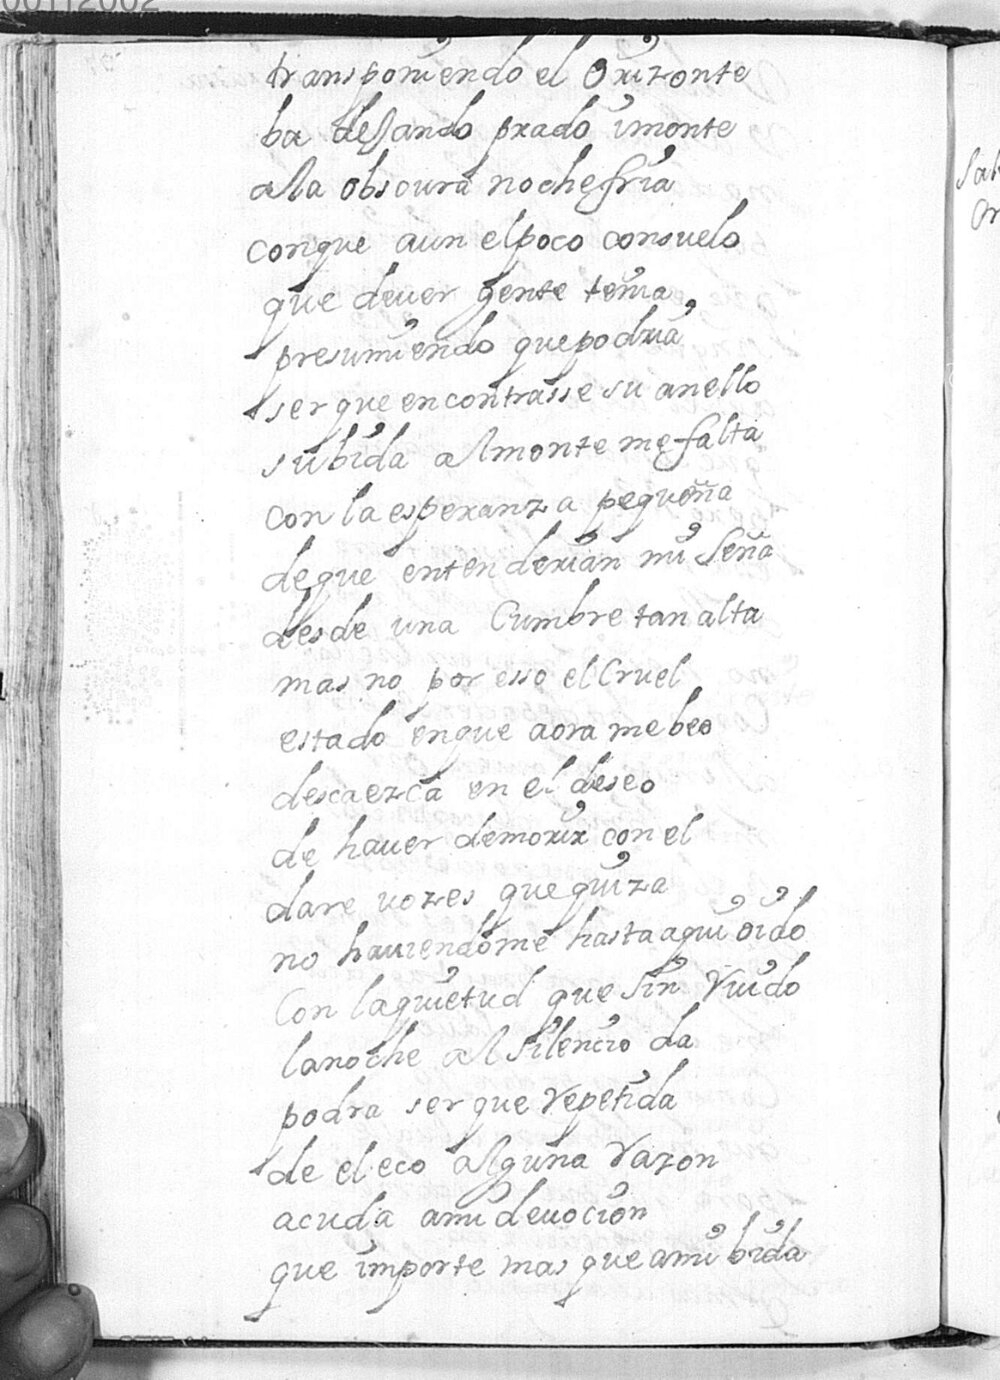 transponiendo el Orizonte
ba dejando prado imonte
a la obscura noche fria
conque aun el poco consuelo
que dever gente tenia
presumiendo que podria
ser que encontrasse su anello
subida al monte me falta
con la esperanza pequeña
de que entenderian mi Seña
desde una Cumbre tan alta
mas no por esso el Cruel
estado en que aora me beo
descaezca en el deseo
de haver de morir con el
dare vozes que quiza
no haviendome hasta aqui oido
Con la quietud que sin Ruido
la noche al silencio da
podra ser que Repetida
de el eco alguna Razon
acuda a mi devocion
que importe mas que a mi bida
Sal